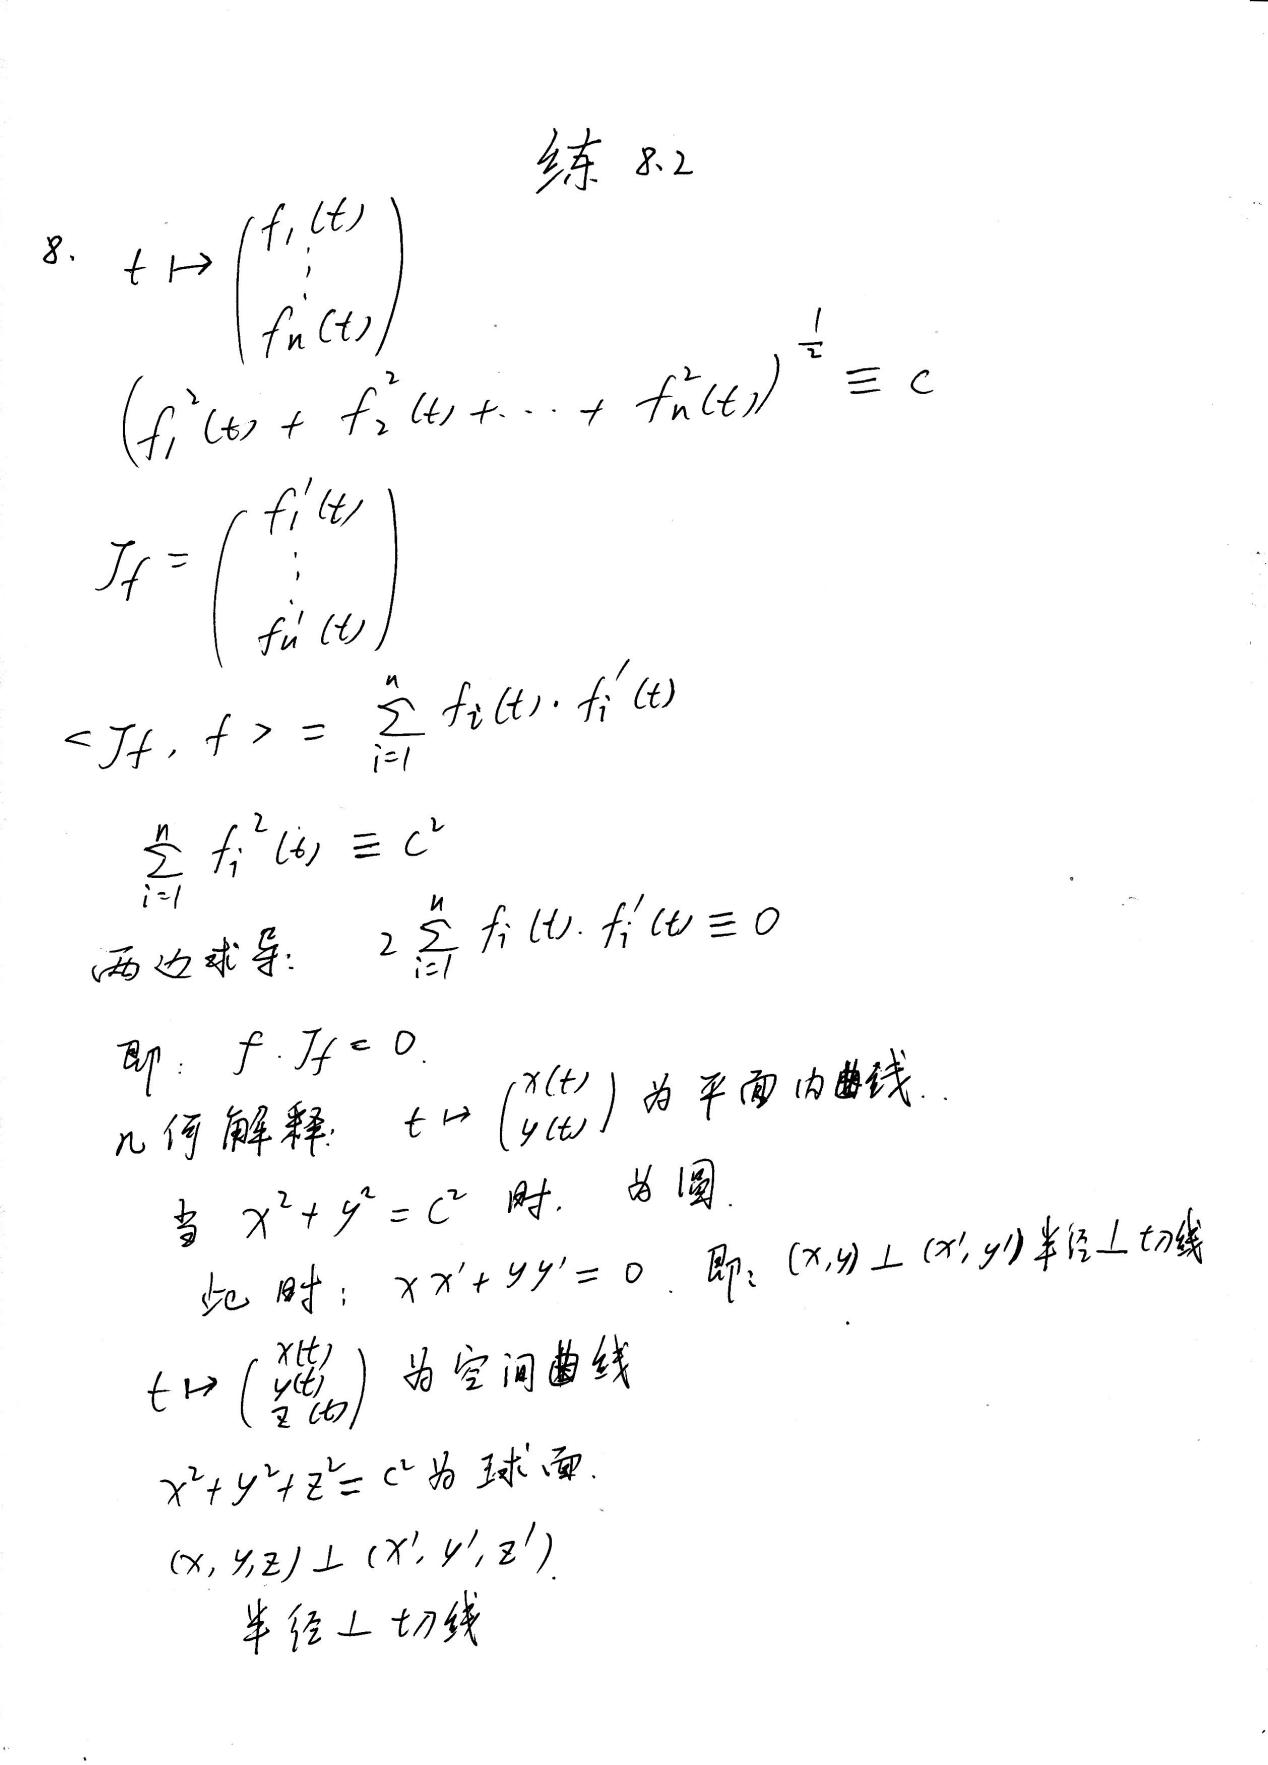 练 8.2
8. t ↦ (f₁(t) ⋮ fₙ(t))
(f₁²(t) + f₂²(t) + ... + fₙ²(t))^{1/2} ≡ c
J_f = (f₁'(t) ⋮ fₙ'(t))
<J_f, f> = ∑_{i=1}^{n} f_i(t)·f_i'(t)
∑_{i=1}^{n} f_i²(t) ≡ c²
两边求导: 2∑_{i=1}^{n} f_i(t)·f_i'(t) ≡ 0
即: f·J_f = 0.
几何解释: t ↦ (x(t) y(t)) 为平面内曲线..
当 x²+y²=c² 时. 为圆.
此时: xx'+yy'=0. 即: (x,y)⊥(x',y') 半径⊥切线
t ↦ (x(t) y(t) z(t)) 为空间曲线
x²+y²+z²=c² 为球面.
(x,y,z)⊥(x',y',z').
半径⊥切线